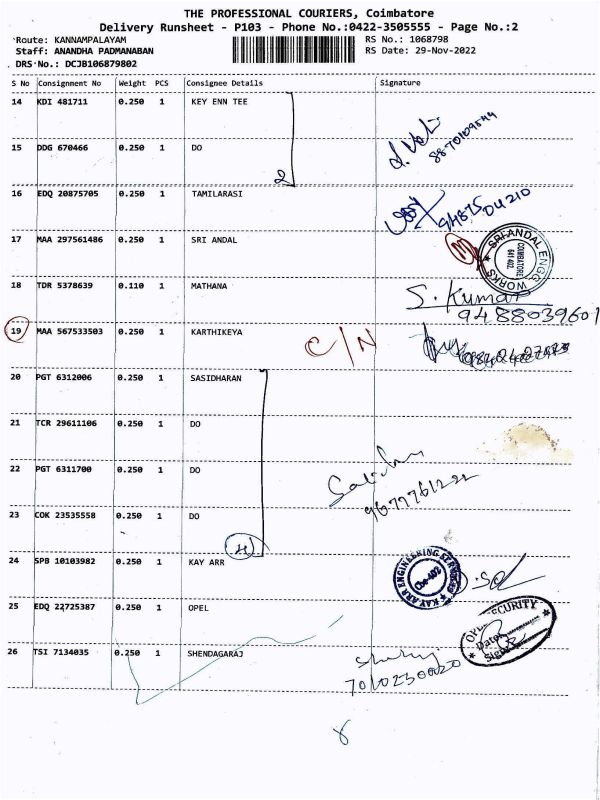 THE PROFESSIONAL COURIERS, Coimbatore
Delivery Runsheet - P103 - Phone No.:0422-3505555 - Page No.:2
Route: KANNAMPALAYAM RS No.: 1068798
Staff: ANANDHA PADMANABAN RS Date: 29-Nov-2022
DRS No.: DCJB106879802
S No Consignment No Weight PCS Consignee Details Signature
14 KDI 481711 0.250 1 KEY ENN TEE
8870109544
15 DDG 670466 0.250 1 DO
2
16 EDQ 20875705 0.250 1 TAMILARASI
94875 04210
17 MAA 297561486 0.250 1 SRI ANDAL
SRI ANDAL ENGG WORKS
COIMBATORE
641 402.
18 TDR 5378639 0.110 1 MATHANA
S. Kumar
9488039601
19 MAA 567533503 0.250 1 KARTHIKEYA
C/N
20 PGT 6312006 0.250 1 SASIDHARAN
21 TCR 29611106 0.250 1 DO
22 PGT 6311700 0.250 1 DO
23 COK 23535558 0.250 1 DO
4
24 SPB 10103982 0.250 1 KAY ARR
KAY ARR ENGINEERING SERVICES
Cbe-402
25 EDQ 22725387 0.250 1 OPEL
SECURITY
Date
Sign
26 TSI 7134035 0.250 1 SHENDAGARAJ
7010230020